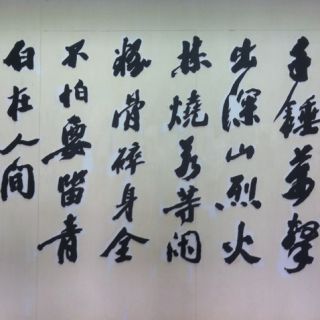 千錘萬擊
出深山烈火
焚燒若等閑
粉骨碎身全
不怕要留青
白在人間